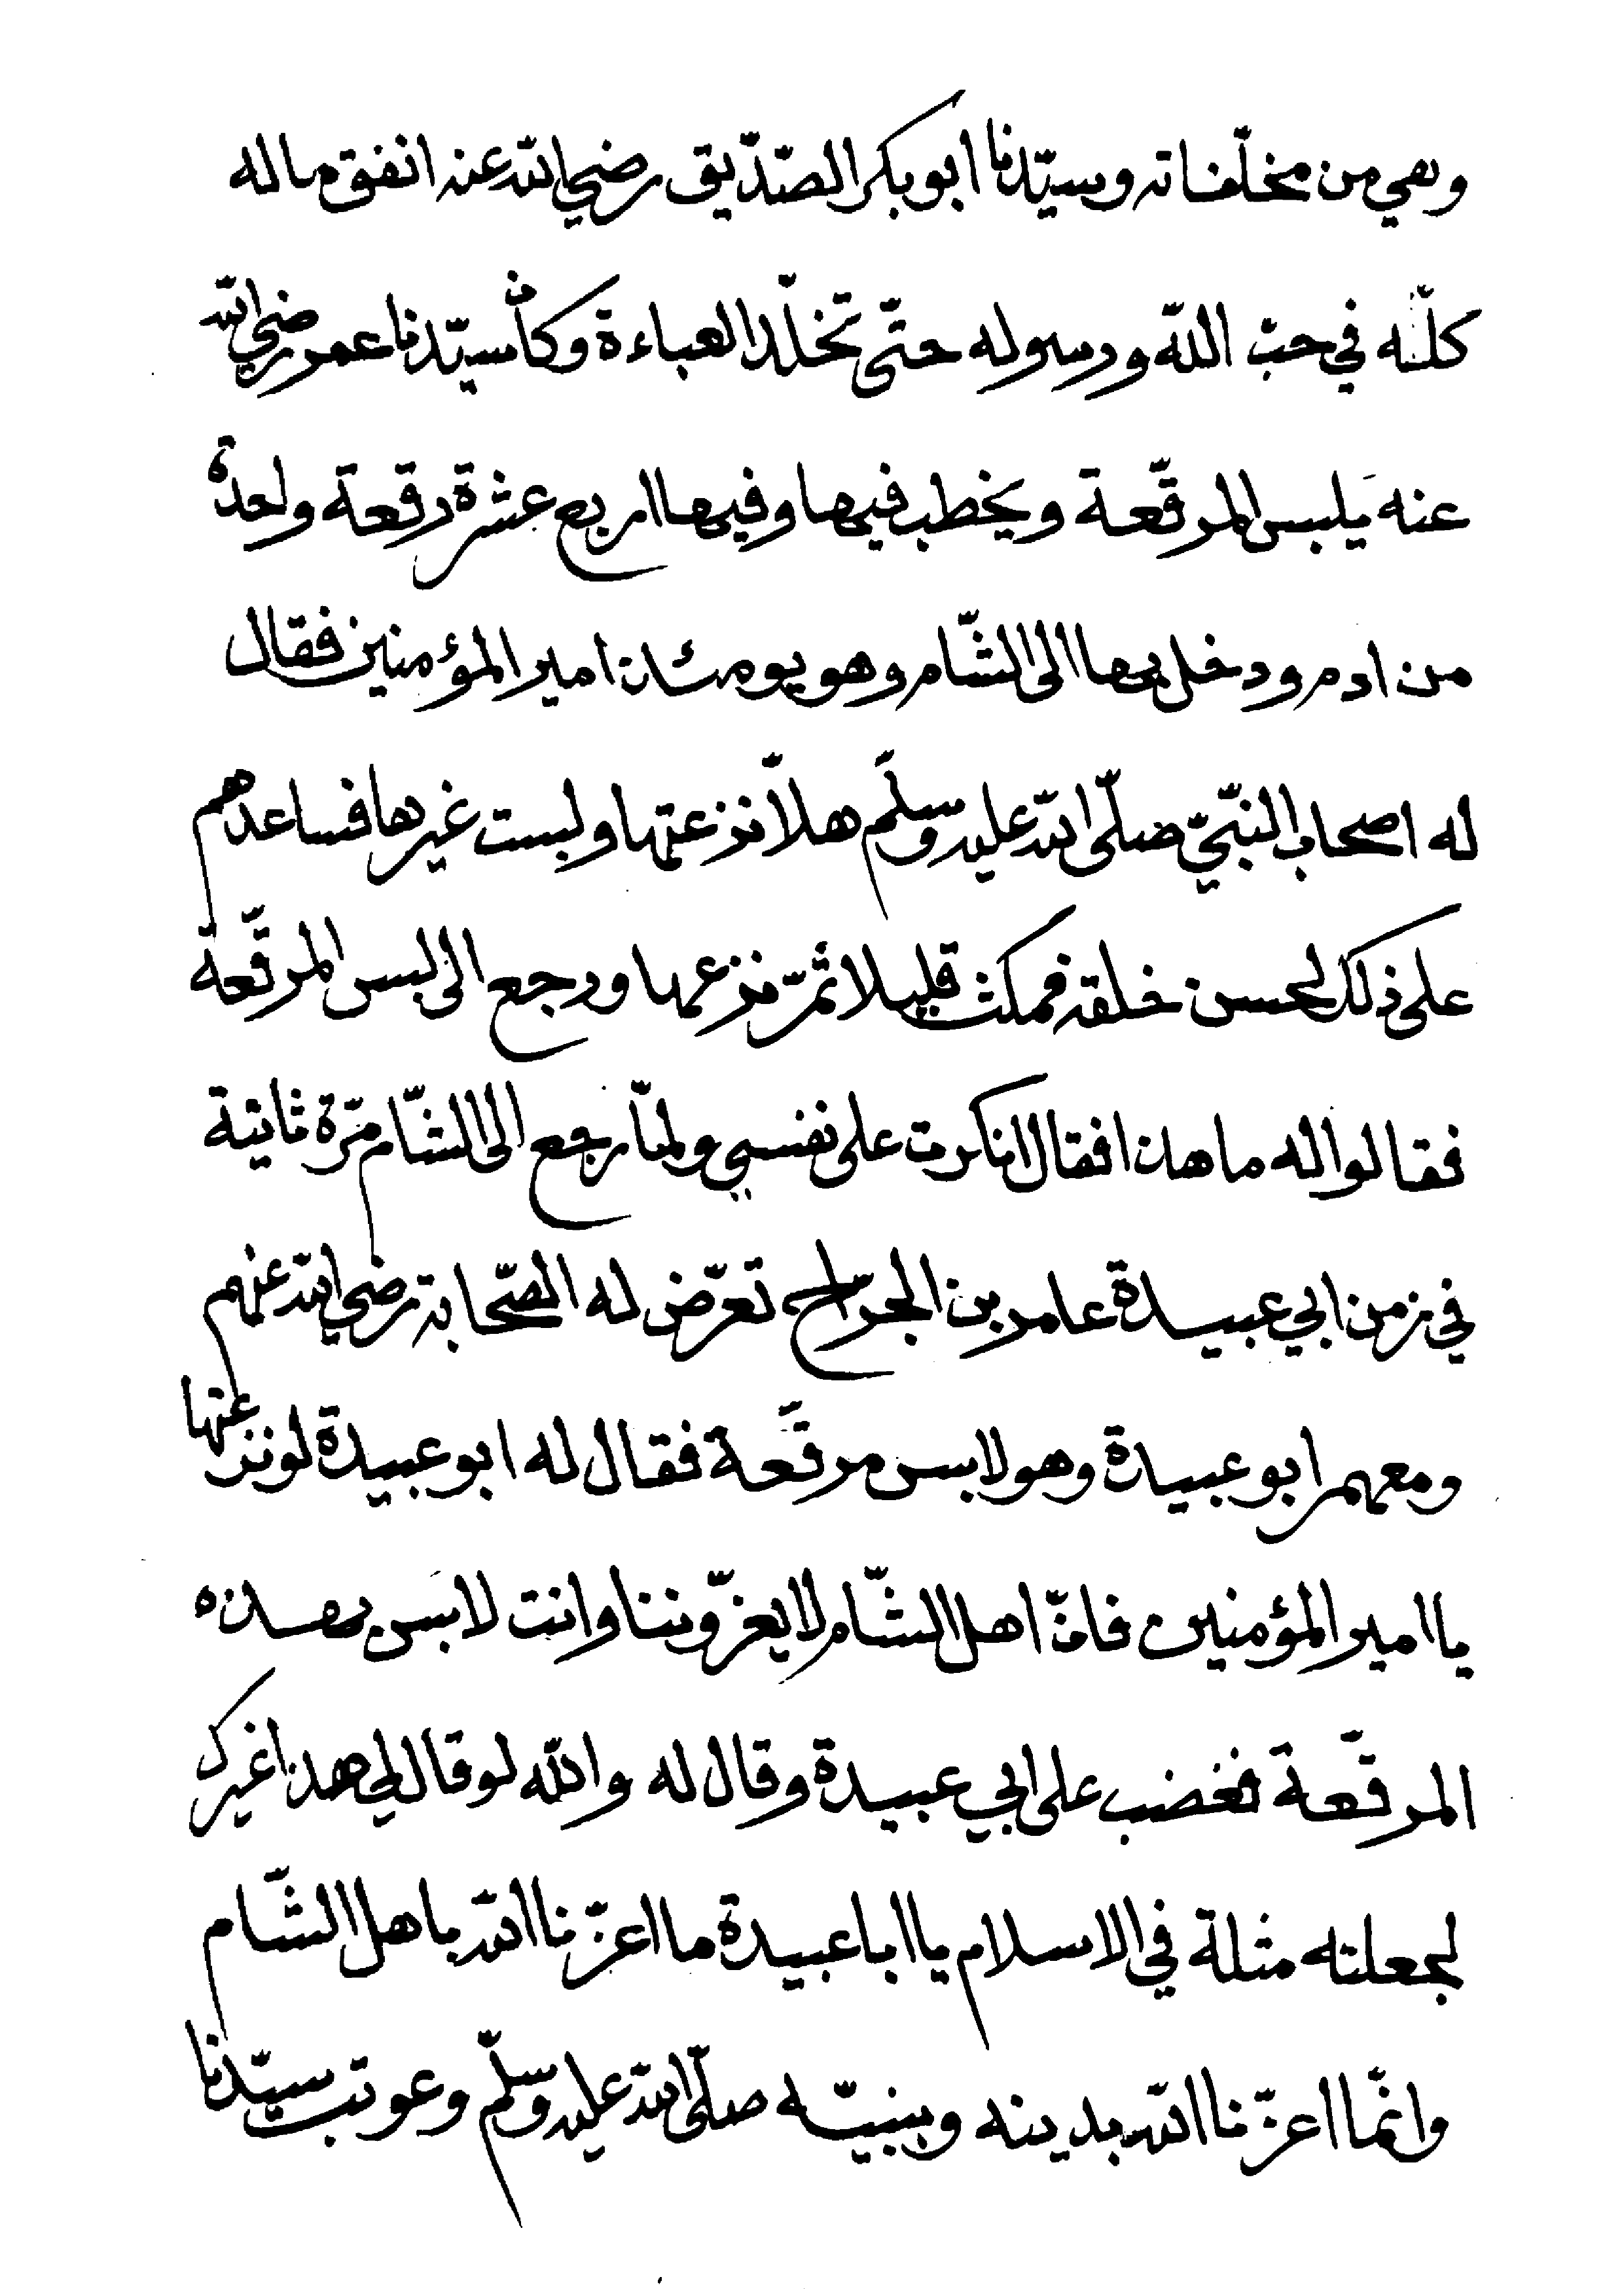 وهي من مخلّفاته وسيّدنا ابو بكر الصّدّيق رضي الله عنه انفق ماله
كلّه في حبّ الله ورسوله حتّى تخلّل العباءة وكان سيّدنا عمر رضي الله
عنه يلبس المرقّعة ويخطب فيها وفيها اربع عشرة رقعة واحدة
من ادم ودخل بها الى الشّام وهو يومئذ امير المؤمنين فقال
له اصحاب النبّيّ صلّى الله عليه وسلّم هلاّ نزعتها ولبست غيرها فساعدهم
على ذلك لحسن خلقه فمكث قليلا ثمّ نزعها ورجع الى لبس المرقّعة
فقالوا له ما هذا فقال انكرت على نفسي ولمّا رجع الى الشّام مرّة ثانية
في زمن ابي عبيدة عامر بن الجرّاح تعرّض له الصّحابة رضي الله عنهم
ومعهم ابو عبيدة وهو لابس مرقّعة فقال له ابو عبيدة لو نزعتها
يا امير المؤمنين فانّ اهل الشّام لا يعزّوننا وانت لابس هذه
المرقّعة فغضب على ابي عبيدة وقال له والله لو قال لي هذا غيرك
لجعلته مثلة في الاسلام يا ابا عبيدة ما اعزّنا الله باهل الشّام
وانّما اعزّنا الله بدينه وبنبيّه صلّى الله عليه وسلّم وعوتب سيّدنا